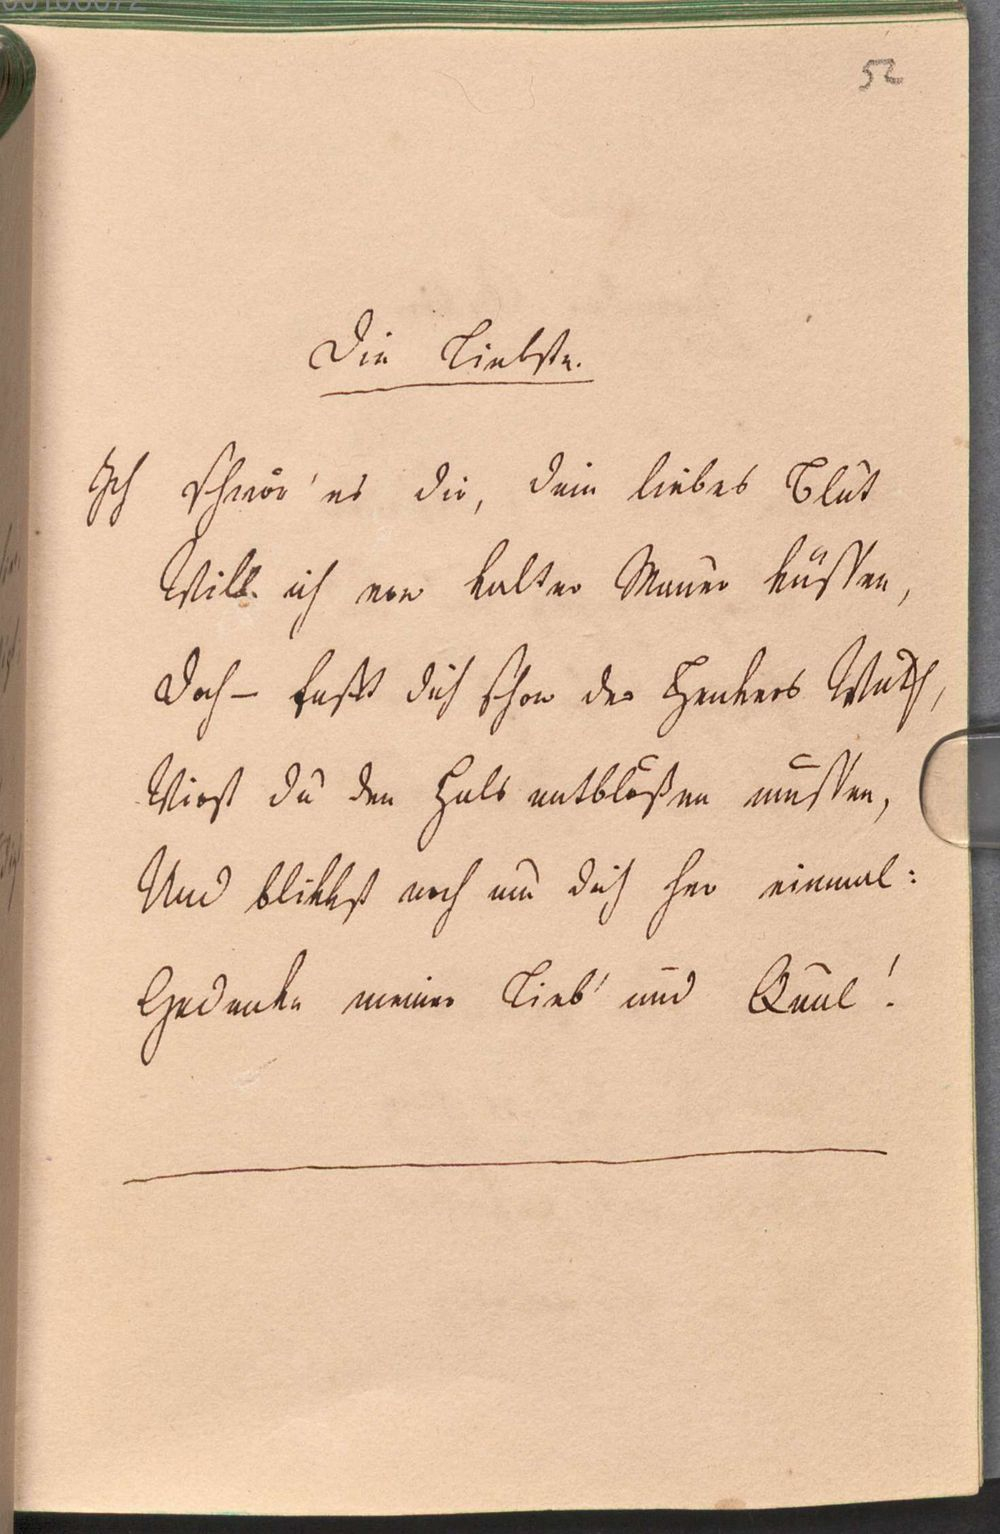 52
Die Liebste.
Ich schwör' es dir, dein liebes Blut
Will ich von kalter Mauer küssen,
Doch – faßt dich schon des Henkers Wuth,
Wirst du den Hals entblößen müssen,
Und blikkst noch um dich her einmal:
Gedenke meiner Lieb' und Qual!